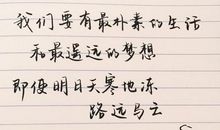 我们要有最朴素的生活
和最遥远的梦想
即使明日天寒地冻
路远马亡